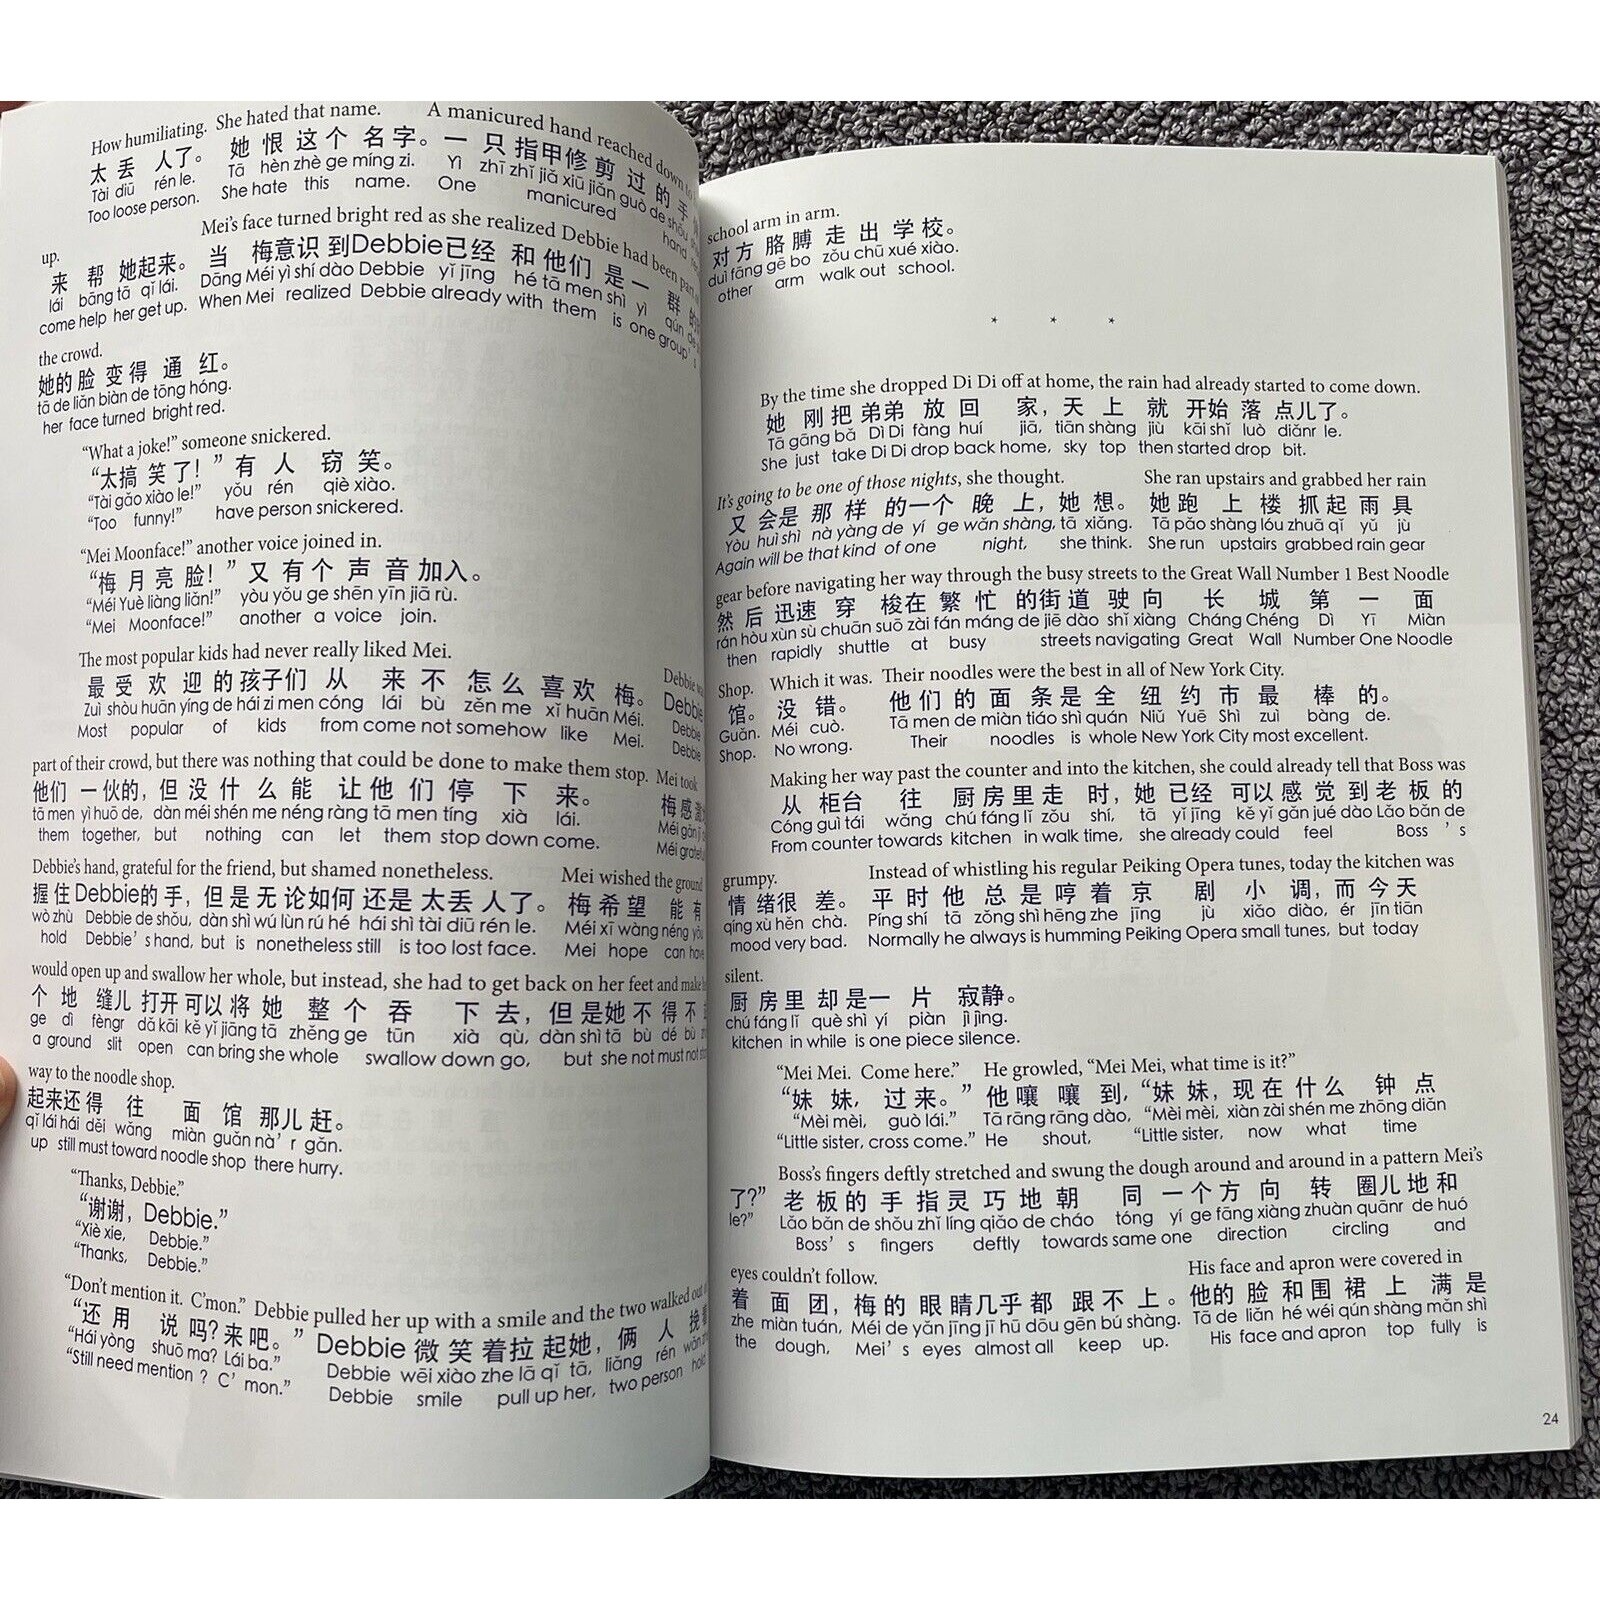 How humiliating. She hated that name. A manicured hand reached down to
太丢人了。 她恨这个名字。一只指甲修剪过的手
Tài diū rén le. Tā hèn zhè ge míng zi. Yì zhī zhǐ jiǎ xiū jiǎn guò de shǒu
Too loose person. She hate this name. One manicured hand
up. Mei's face turned bright red as she realized Debbie had been part
来帮她起来。 当梅意识到Debbie已经和他们是一群的
lái bāng tā qǐ lái. Dāng Méi yì shí dào Debbie yǐ jīng hé tā men shì yì qún de
come help her get up. When Mei realized Debbie already with them is one group's
the crowd.
她的脸变得通红。
tā de liǎn biàn de tōng hóng.
her face turned bright red.
“What a joke!” someone snickered.
“太搞笑了！”有人窃笑。
“Tài gǎo xiào le!” yǒu rén qiè xiào.
“Too funny!” have person snickered.
“Mei Moonface!” another voice joined in.
“梅月亮脸！”又有个声音加入。
“Méi Yuè liàng liǎn!” yòu yǒu ge shēn yīn jiā rù.
“Mei Moonface!” another a voice join.
The most popular kids had never really liked Mei. Debbie
最受欢迎的孩子们从来不怎么喜欢梅。 Debbie
Zuì shòu huān yíng de hái zi men cóng lái bù zěn me xǐ huān Méi. Debbie
Most popular of kids from come not somehow like Mei. Debbie
part of their crowd, but there was nothing that could be done to make them stop. Mei took
他们一伙的，但没什么能让他们停下来。 梅感激
tā men yì huǒ de, dàn méi shén me néng ràng tā men tíng xià lái. Méi gǎn
them together, but nothing can let them stop down come. Mei
Debbie's hand, grateful for the friend, but shamed nonetheless. Mei wished the ground
握住Debbie的手，但是无论如何还是太丢人了。 梅希望能有
wò zhù Debbie de shǒu, dàn shì wú lùn rú hé hái shì tài diū rén le. Méi xī wàng néng yǒu
hold Debbie's hand, but is nonetheless still is too lost face. Mei hope can have
would open up and swallow her whole, but instead, she had to get back on her feet and make
个地缝儿打开可以将她整个吞下去，但是她不得不
ge dì fèngr dǎ kāi kě yǐ jiāng tā zhěng ge tūn xià qù, dàn shì tā bù dé bù
a ground slit open can bring she whole swallow down go, but she not must not
way to the noodle shop.
起来还得往面馆那儿赶。
qǐ lái hái děi wǎng miàn guǎn nà'r gǎn.
up still must toward noodle shop there hurry.
“Thanks, Debbie.”
“谢谢，Debbie.”
“Xiè xie, Debbie.”
“Thanks, Debbie.”
“Don't mention it. C'mon.” Debbie pulled her up with a smile and the two walked out
“还用说吗？来吧。” Debbie微笑着拉起她，俩人挽
“Hái yòng shuō ma? Lái ba.” Debbie wēi xiào zhe lā qǐ tā, liǎng rén wǎn
“Still need mention ? C'mon.” Debbie smile pull up her, two person hold
school arm in arm.
对方胳膊走出学校。
duì fāng gē bo zǒu chū xué xiào.
other arm walk out school.
* * *
By the time she dropped Di Di off at home, the rain had already started to come down.
她刚把弟弟放回家，天上就开始落点儿了。
Tā gāng bǎ Dì Di fàng huí jiā, tiān shàng jiù kāi shǐ luò diǎnr le.
She just take Di Di drop back home, sky top then started drop bit.
It's going to be one of those nights, she thought. She ran upstairs and grabbed her rain
又会是那样的一个晚上，她想。 她跑上楼抓起雨具
Yòu huì shì nà yàng de yí ge wǎn shàng, tā xiǎng. Tā pǎo shàng lóu zhuā qǐ yǔ jù
Again will be that kind of one night, she think. She run upstairs grabbed rain gear
gear before navigating her way through the busy streets to the Great Wall Number 1 Best Noodle
然后迅速穿梭在繁忙的街道驶向长城第一面
rán hòu xùn sù chuān suō zài fán máng de jiē dào shǐ xiàng Cháng Chéng Dì Yī Miàn
then rapidly shuttle at busy streets navigating Great Wall Number One Noodle
Shop. Which it was. Their noodles were the best in all of New York City.
馆。没错。 他们的面条是全纽约市最棒的。
Guǎn. Méi cuò. Tā men de miàn tiáo shì quán Niǔ Yuē Shì zuì bàng de.
Shop. No wrong. Their noodles is whole New York City most excellent.
Making her way past the counter and into the kitchen, she could already tell that Boss was
从柜台往厨房里走时，她已经可以感觉到老板的
Cóng guì tái wǎng chú fáng lǐ zǒu shí, tā yǐ jīng kě yǐ gǎn jué dào Lǎo bǎn de
From counter towards kitchen in walk time, she already could feel Boss 's
grumpy. Instead of whistling his regular Peiking Opera tunes, today the kitchen was
情绪很差。 平时他总是哼着京剧小调，而今天
qíng xù hěn chà. Píng shí tā zǒng shì hēng zhe jīng jù xiǎo diào, ér jīn tiān
mood very bad. Normally he always is humming Peiking Opera small tunes, but today
silent.
厨房里却是一片寂静。
chú fáng lǐ què shì yí piàn jì jìng.
kitchen in while is one piece silence.
“Mei Mei. Come here.” He growled, “Mei Mei, what time is it?”
“妹妹，过来。”他嚷嚷到，“妹妹，现在什么钟点
“Mèi mèi, guò lái.” Tā rāng rāng dào, “Mèi mèi, xiàn zài shén me zhōng diǎn
“Little sister, cross come.” He shout, “Little sister, now what time
Boss's fingers deftly stretched and swung the dough around and around in a pattern Mei's
了？” 老板的手指灵巧地朝同一个方向转圈儿地和
le?” Lǎo bǎn de shǒu zhǐ líng qiǎo de cháo tóng yí ge fāng xiàng zhuàn quānr de huó
Boss's fingers deftly towards same one direction circling and
eyes couldn't follow. His face and apron were covered in
着面团，梅的眼睛几乎都跟不上。他的脸和围裙上满是
zhe miàn tuán, Méi de yǎn jīng jī hū dōu gēn bú shàng. Tā de liǎn hé wéi qún shàng mǎn shì
the dough, Mei's eyes almost all keep up. His face and apron top fully is
24